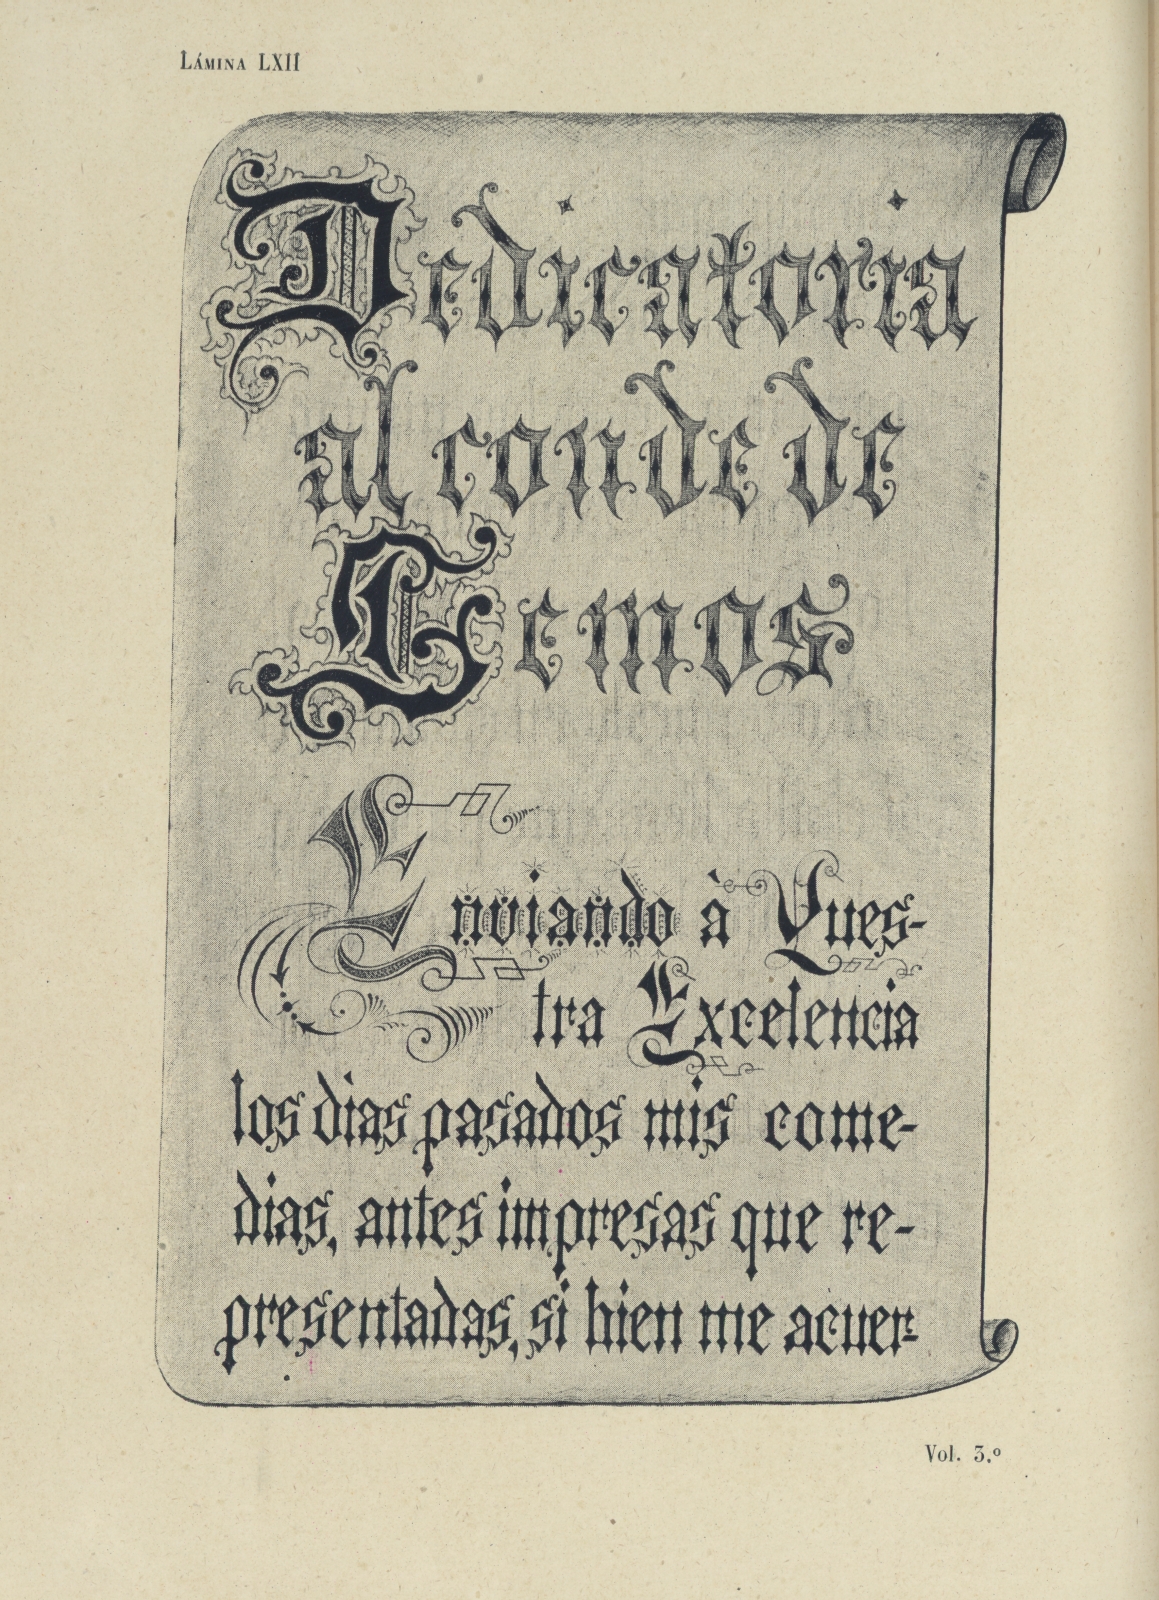 Lámina LXII
Dedicatoria
al conde de
Lemos
Enviando à Vues-
tra Excelencia
los dias pasados mis come-
dias, antes impresas que re-
presentadas, si bien me acuer-
Vol. 3.º